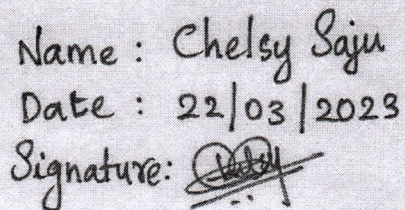 Name : Chelsy Saju
Date : 22/03/2023
Signature: